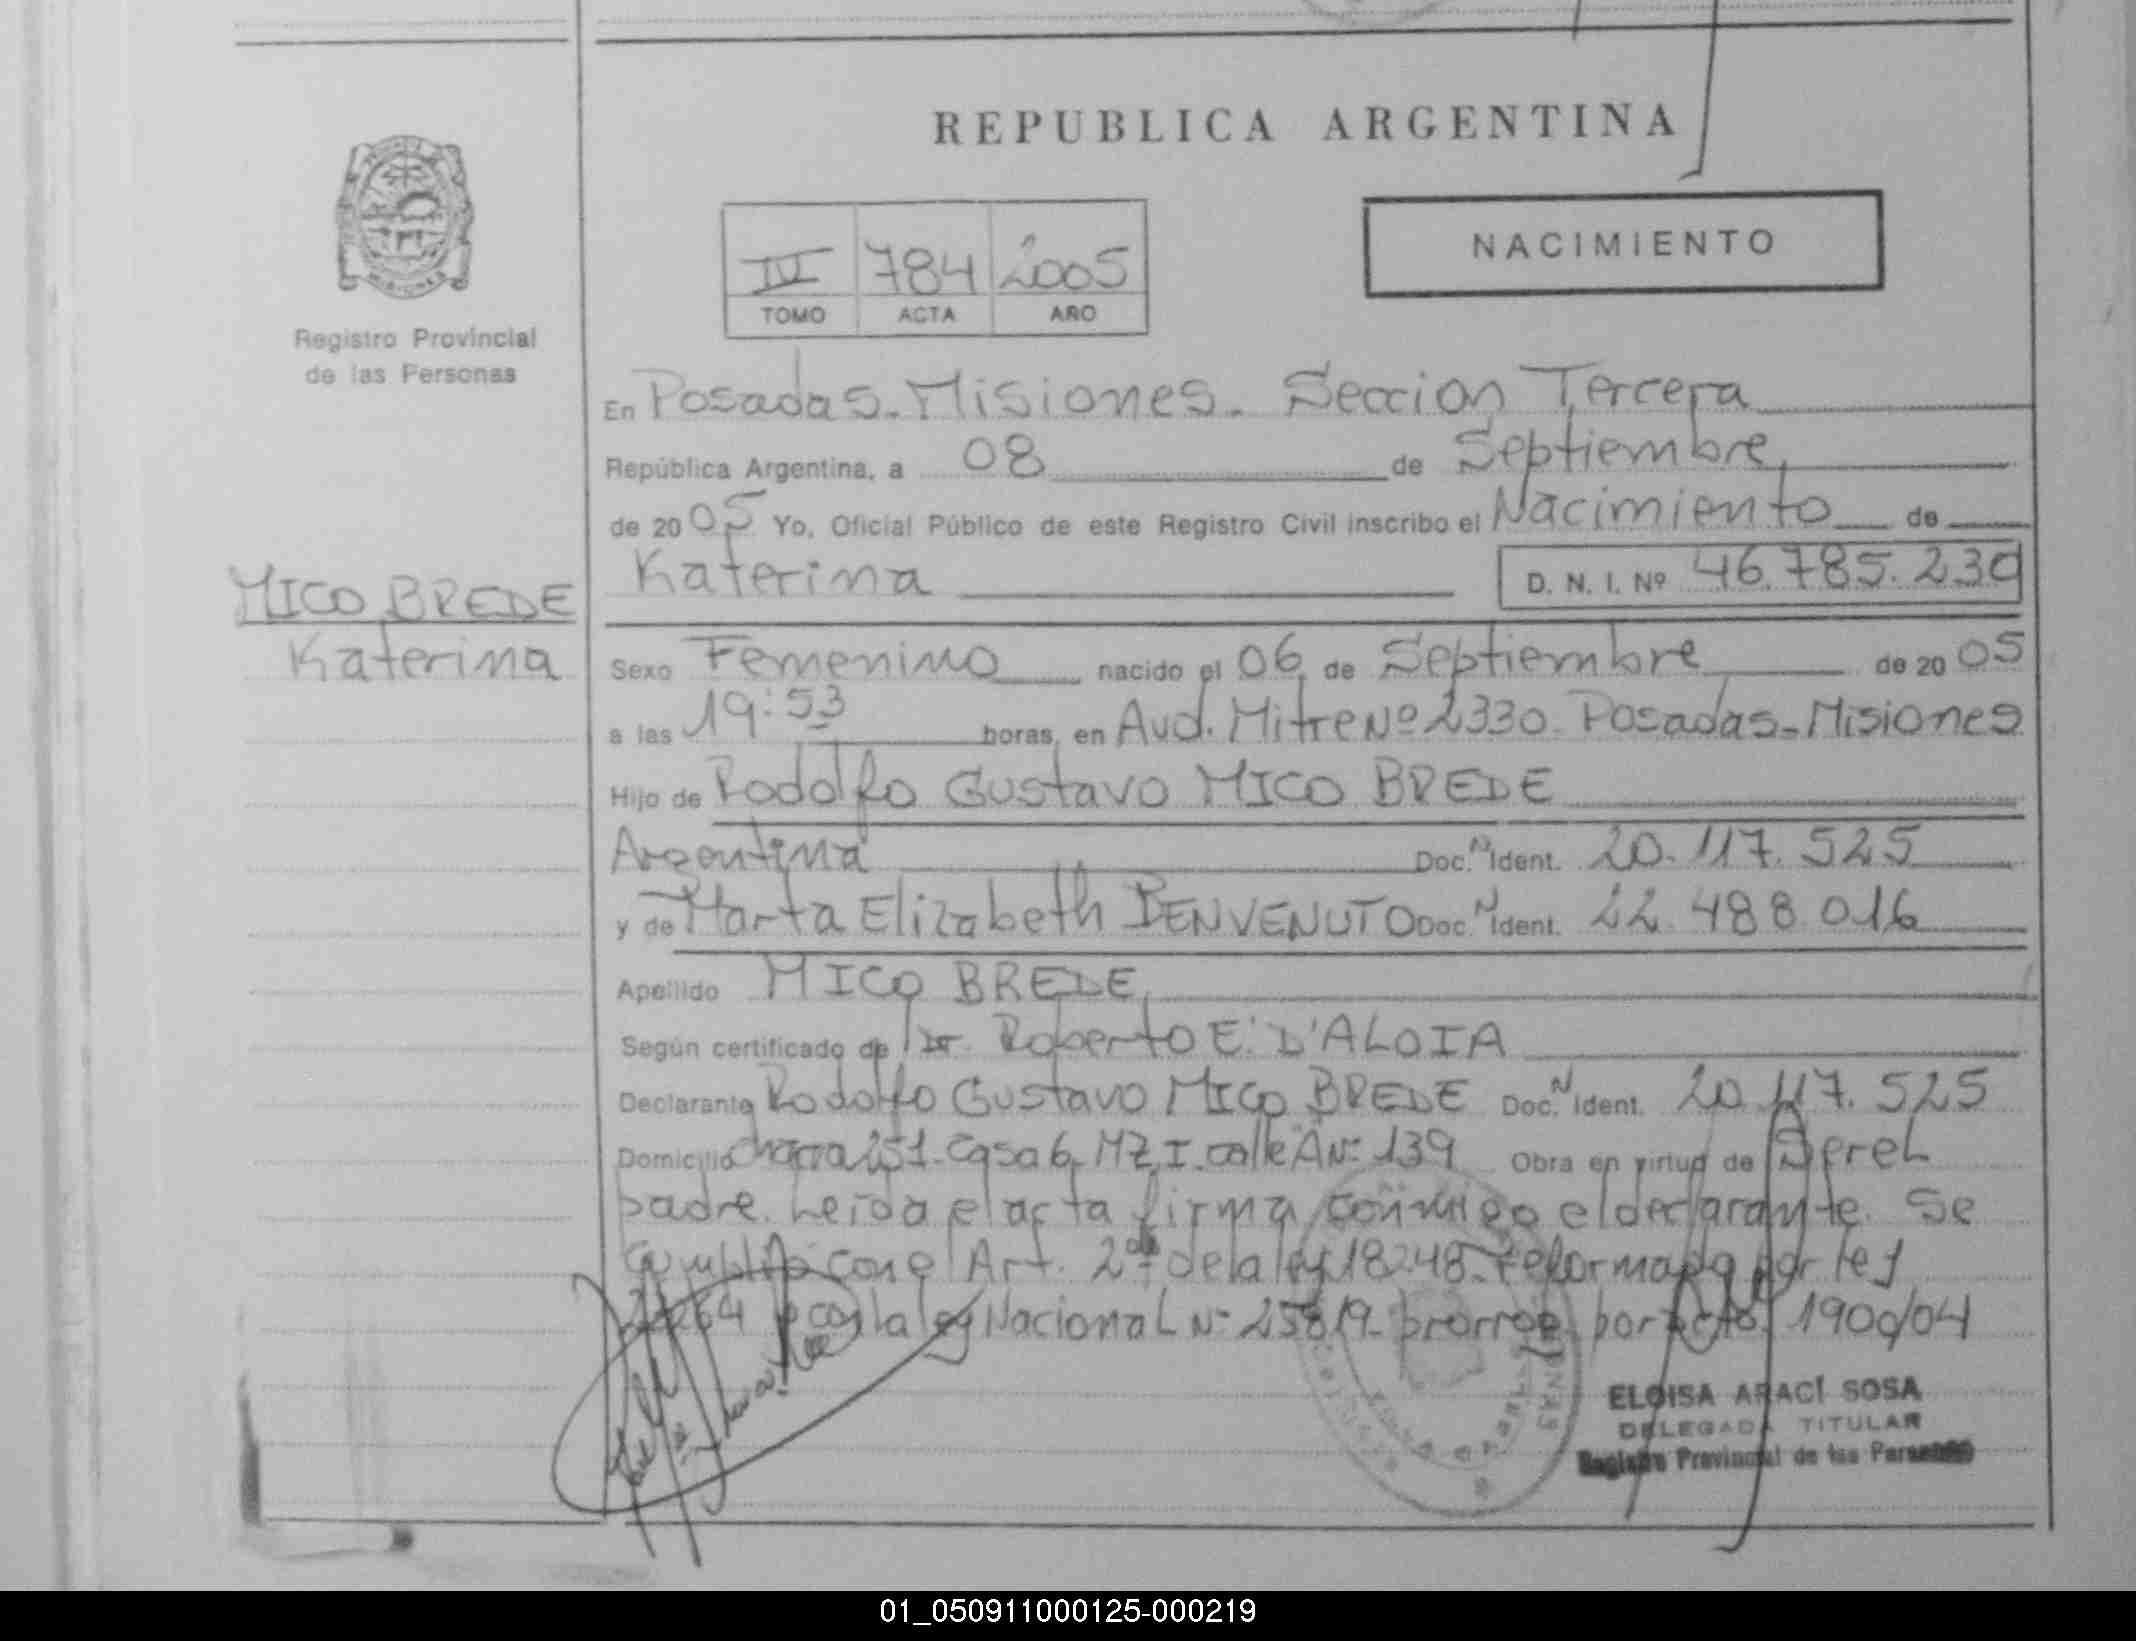 REPUBLICA ARGENTINA
NACIMIENTO
IV 784 2005
TOMO ACTA AÑO
Registro Provincial
de las Personas
En Posadas-Misiones. Seccion Tercera
República Argentina, a 08 de Septiembre
de 2005 Yo, Oficial Público de este Registro Civil inscribo el Nacimiento de
Katerina D. N. I. Nº 46.785.230
MICO BREDE
Katerina
Sexo Femenino nacido el 06 de Septiembre de 2005
a las 19:53 horas, en Avd. Mitre Nº 2330. Posadas-Misiones
Hijo de Rodolfo Gustavo MICO BREDE
Argentina Doc. N Ident. 20.117.525
y de Marta Elizabeth BENVENUTO Doc. N Ident. 22.488.016
Apellido MICO BREDE
Según certificado de Dr. Roberto E. D'ALOIA
Declarante Rodolfo Gustavo MICO BREDE Doc. N Ident. 20.117.525
Domicilio chacra 151-Casa 6, MZ I. calle A Nº 139 Obra en virtud de Ser el
padre. Leida el acta firma conmigo el declarante. Se
cumplio con el Art. 2º de la ley 18248. reformada por ley
con la ley Nacional Nº 25819. prorrog. por 1900/04
ELOISA ARACÍ SOSA
DELEGADA TITULAR
Registro Provincial de las Personas
01_050911000125-000219